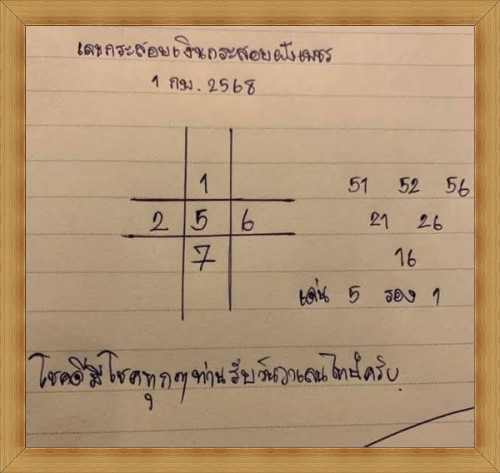 เลขกระสอบเงินกระสอบฝังเพชร
1 กพ. 2568
1
51 52 56
2 5 6
21 26
7
16
เด่น 5 รอง 1
โชคดีมีโชคทุกๆท่านรับวันวาเลนไทน์ครับ